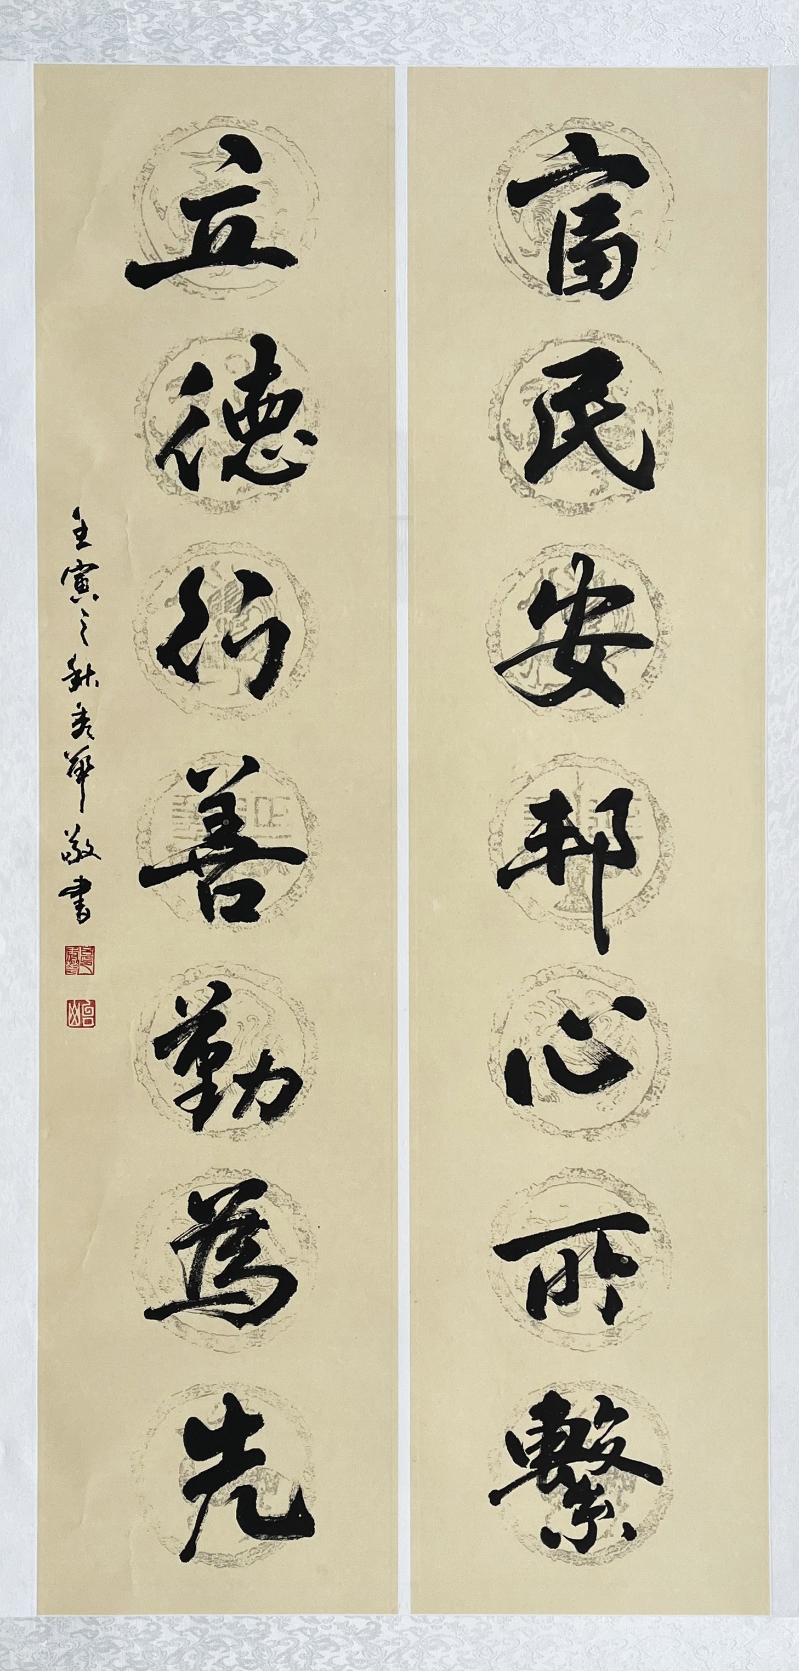 富民安邦心所繫
立德行善勤為先
壬寅之秋秀華敬書